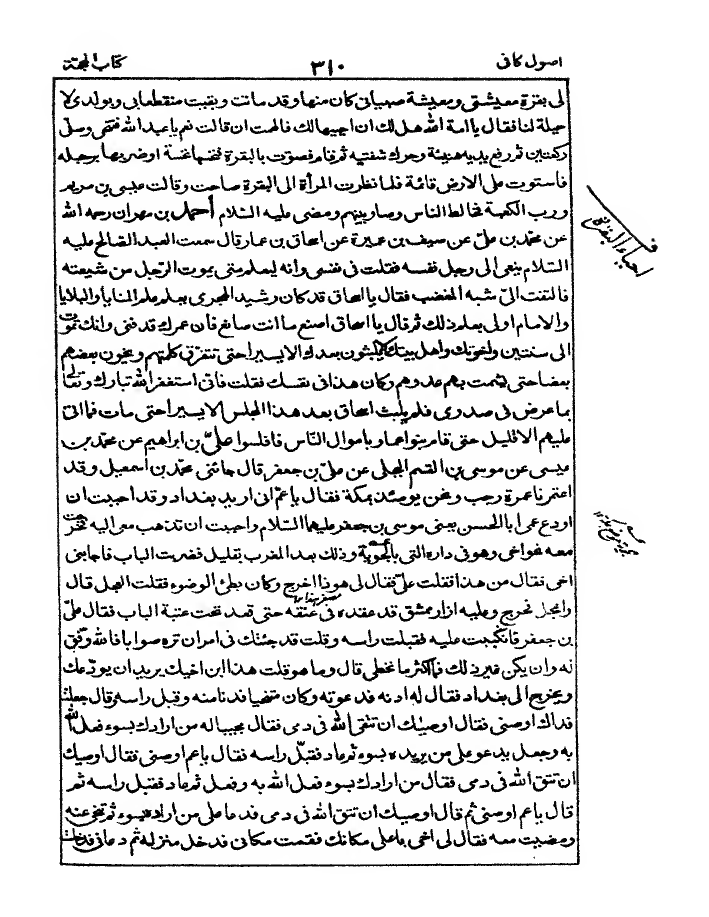 اصول كافى
٣١٠
كتاب الحجة
لى بقرة معيشتى ومعيشة صبيانى كان منها وقد ماتت وبقيت منقطعا بى وبولدى لا
حيلة لنا فقال يا امة الله هل لك ان احييها لك فالهمت ان قالت نعم يا عبد الله فتنحى وصلى
ركعتين ثم رفع يديه هنيئة وحرك شفتيه ثم قام فصوت بالبقرة فنخسها نخسة او ضربها برجله
فاستوت على الارض قائمة فلما نظرت المرأة الى البقرة صاحت وقالت عيسى بن مريم
ورب الكعبة فخالط الناس وصار بينهم ومضى عليه السلام أحمد بن مهران رحمه الله
عن محمد بن على عن سيف بن عميرة عن اسحاق بن عمار قال سمعت العبد الصالح عليه
السلام ينعى الى رجل نفسه فقلت فى نفسى وانه ليعلم متى يموت الرجل من شيعته
فالتفت الىّ شبه المغضب فقال يا اسحاق قد كان رشيد الهجرى يعلم علم المنايا والبلايا
والامام اولى بعلم ذلك ثم قال يا اسحاق اصنع ما انت صانع فان عمرك قد فنى وانك تموت
الى سنتين واخوتك واهل بيتك لا يلبثون بعدك الا يسيرا حتى تتفرق كلمتهم ويخون بعضهم
بعضا حتى يشمت بهم عدوهم وكان هذا فى نفسك فقلت فانى استغفر الله تبارك وتعالى
بما عرض فى صدرى فلم يلبث اسحاق بعد هذا المجلس الا يسيرا حتى مات فما اتى
عليهم الا قليل حتى قام بنو عمار باموال الناس فافلسوا علىّ بن ابراهيم عن محمد بن
عيسى عن موسى بن القسم البجلى عن على بن جعفر قال جائنى محمد بن اسمعيل وقد
اعتمرنا عمرة رجب ونحن يومئذ بمكة فقال يا عم انى اريد بغداد وقد احببت ان
اودع عمى ابا الحسن يعنى موسى بن جعفر عليهما السلام واحببت ان تذهب معى اليه فخرجت
معه نحو اخى وهو فى داره التى بالحوبة وذلك بعد المغرب بقليل فضربت الباب فاجابنى
اخى فقال من هذا فقلت علىّ فقال لى هوذا اخرج وكان بطئ الوضوء فقلت العجل قال
واعجل فخرج وعليه ازار ممشق قد عقده فى عنقه حتى قعد تحت عتبة الباب فقال علىّ
بن جعفر فانكببت عليه فقبلت راسه وقلت قد جئتك فى امر ان تره صوابا فالله وفق
له وان يكن غير ذلك فما اكثر ما نخطى قال وما هو قلت هذا ابن اخيك يريد ان يودّعك
ويخرج الى بغداد فقال له ادنه فدعوته وكان متنحيا فدنا منه وقبل راسه وقال جعلت
فداك اوصنى فقال اوصيك ان تتقى الله فى دمى فقال مجيبا له من ارادك بسوء فعل الله
به وجعل يدعو على من يريده بسوء ثم عاد فقبّل راسه فقال يا عم اوصنى فقال اوصيك
ان تتق الله فى دمى فقال من ارادك بسوء فعل الله به وفعل ثم عاد فقبل راسه ثم
قال يا عم اوصنى ثم قال اوصيك ان تتق الله فى دمى فدعا على من اراده بسوء ثم تنحى عنه
ومضيت معه فقال لى اخى يا على مكانك فقمت مكانى فدخل منزله ثم دعانى فدخلت
احياء البقرة